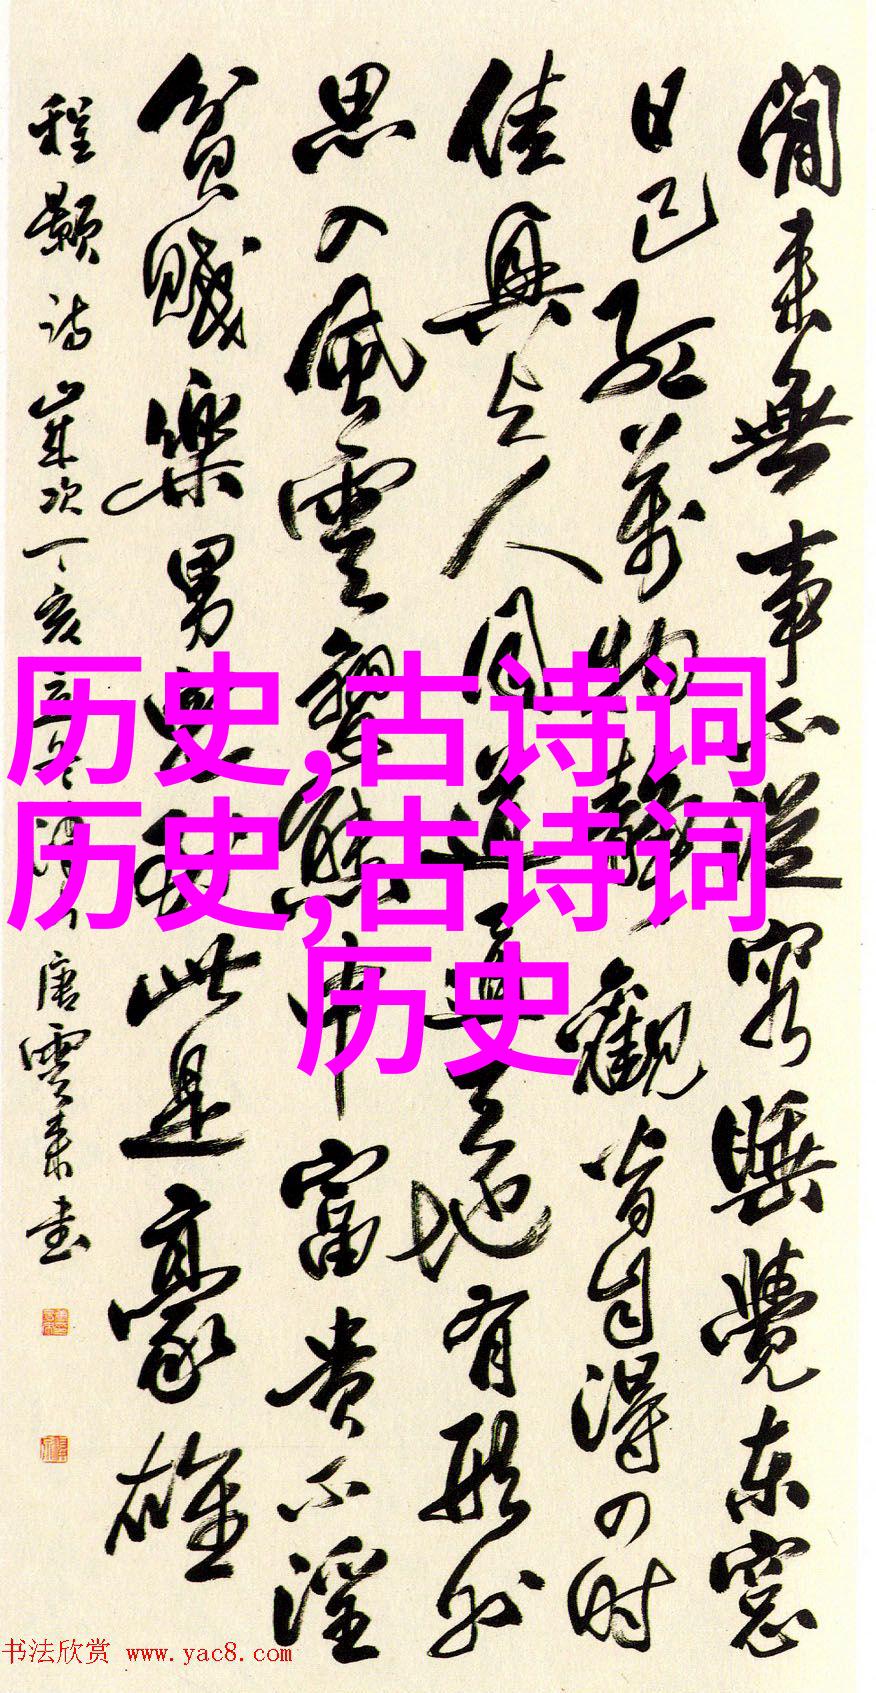 閒来無事不從容睡覺东窓
日已红萬物静觀皆自得四时
佳興与人同道通天地有形外
思入風雲變態中富贵不淫
贫賤樂男兒到此是豪雄
程颢诗歲次丁亥
唐雲来书
历史,古诗词
历史,古诗词
历史
书法欣赏 www.yac8.com